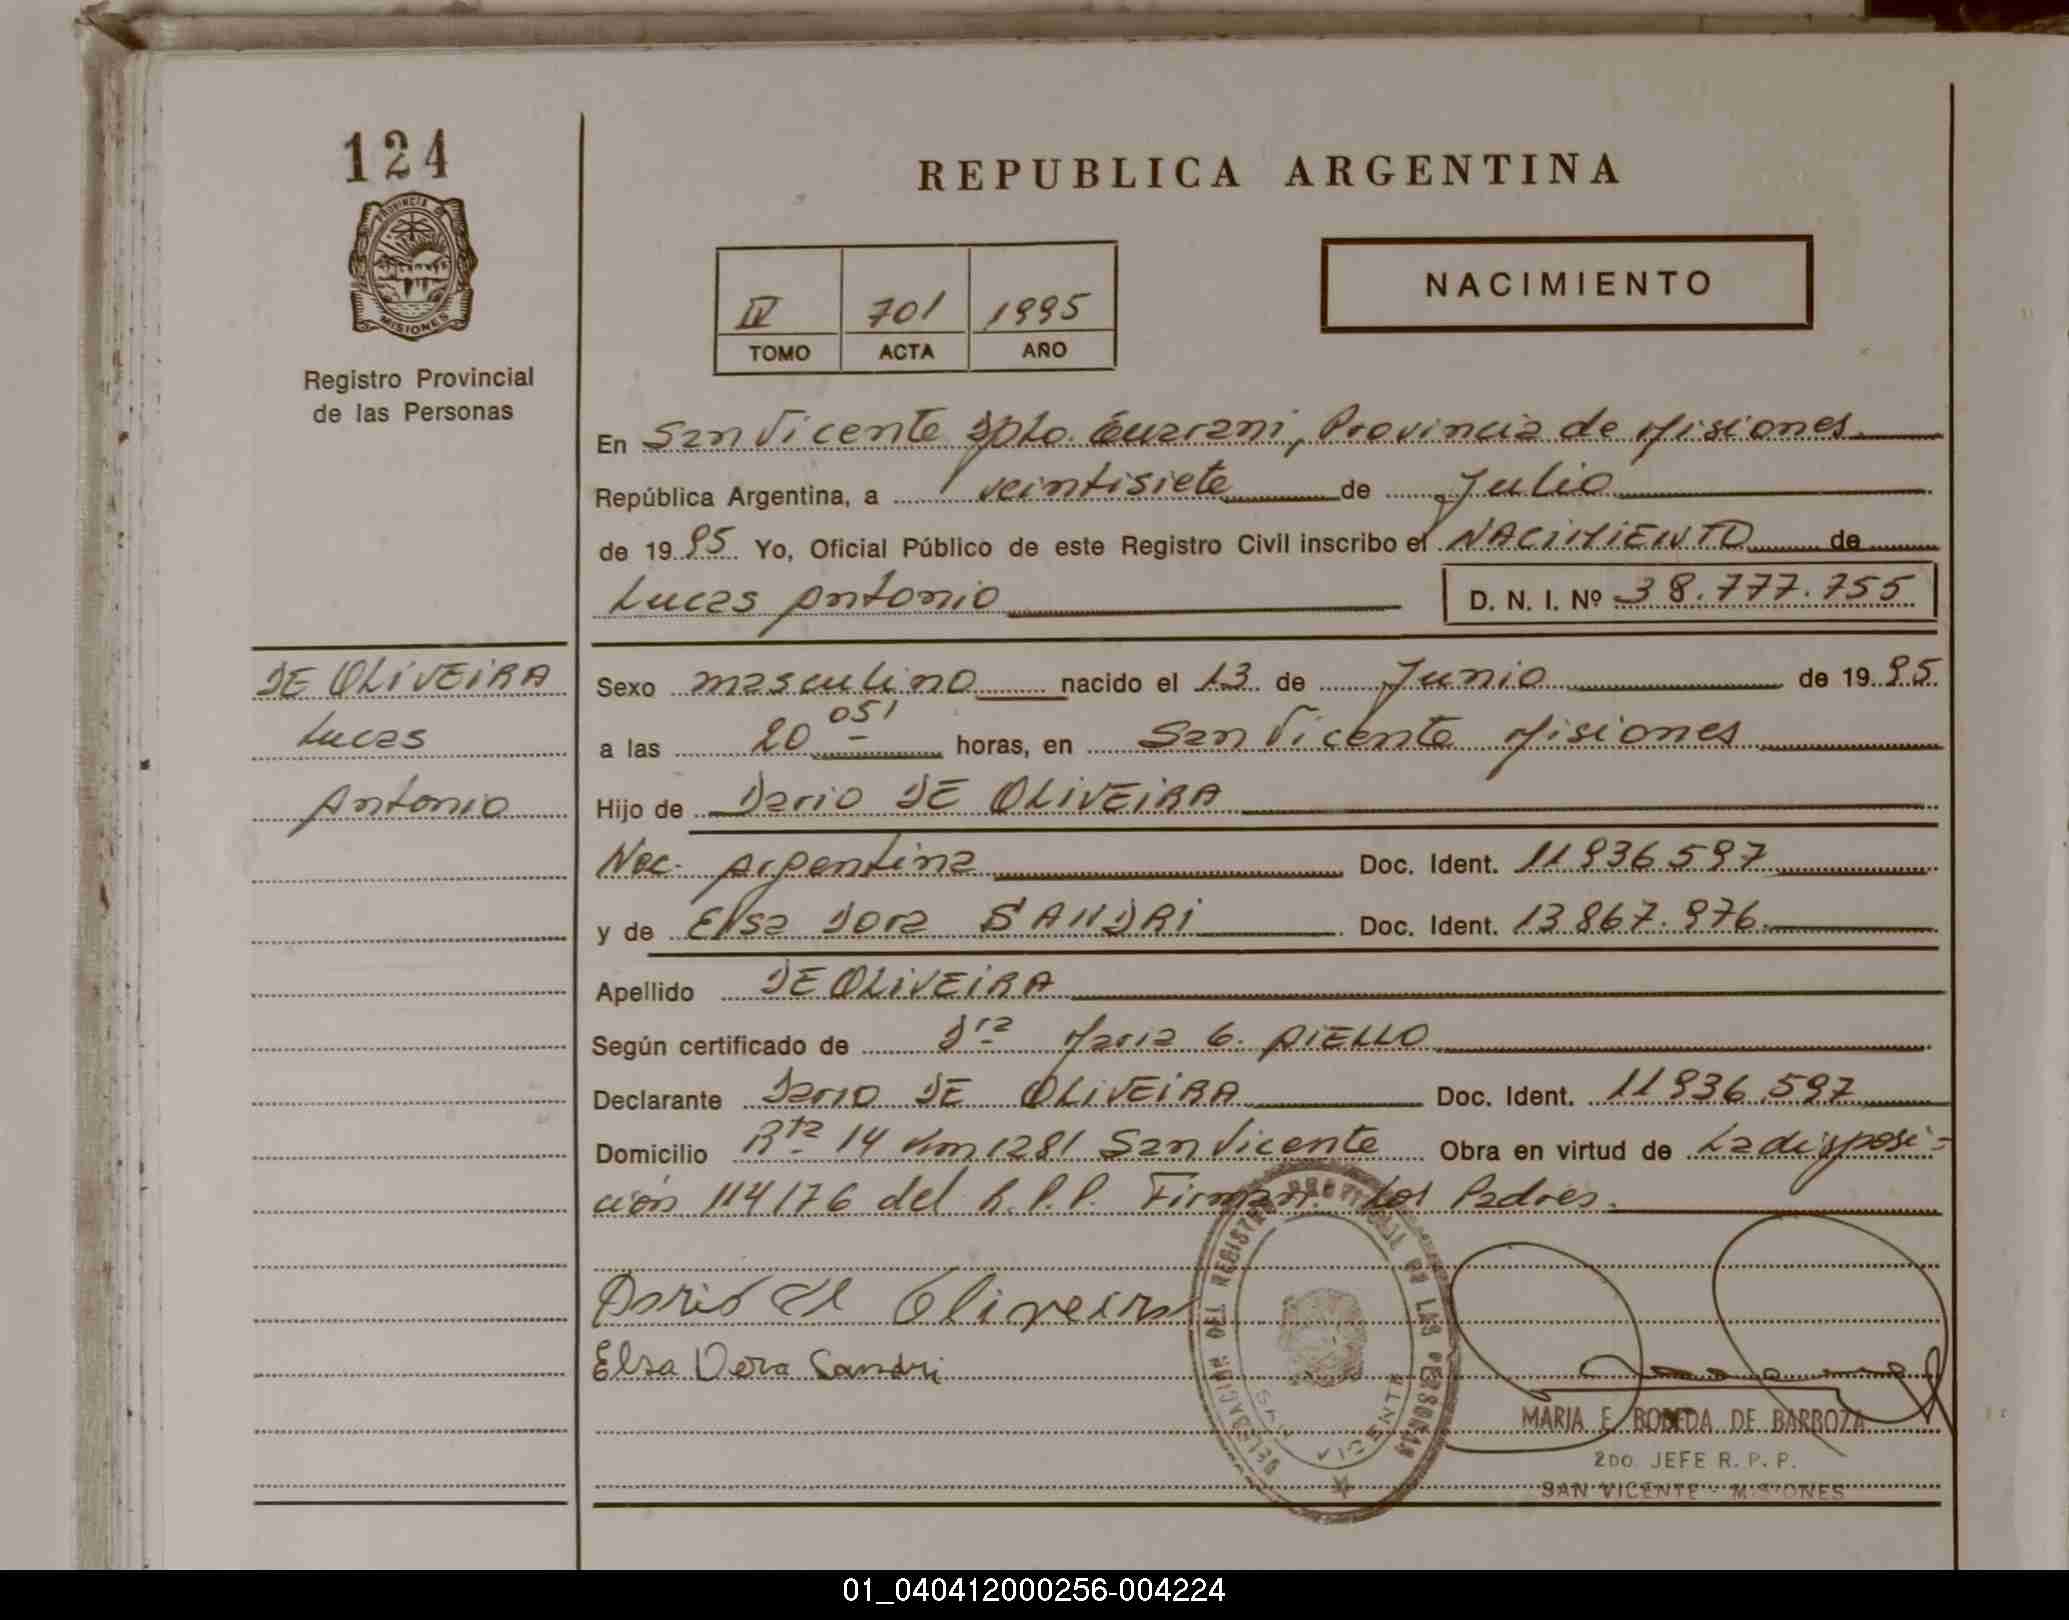 124
PROVINCIA DE
MISIONES
Registro Provincial
de las Personas
REPUBLICA ARGENTINA
IV 701 1995
TOMO ACTA AÑO
NACIMIENTO
En San Vicente Dpto. Guarani, Provincia de Misiones
República Argentina, a veintisiete de Julio
de 1995 Yo, Oficial Público de este Registro Civil inscribo el NACIMIENTO de
Lucas Antonio D. N. I. Nº 38.777.755
DE OLIVEIRA
Lucas
Antonio
Sexo masculino nacido el 13 de Junio de 1995
a las 20 05' horas, en San Vicente Misiones
Hijo de Dario DE OLIVEIRA
Nac. Argentina Doc. Ident. 11936597
y de Elsa Dora SANDRI Doc. Ident. 13.867.976
Apellido DE OLIVEIRA
Según certificado de Dra Maria G. AIELLO
Declarante Dario DE OLIVEIRA Doc. Ident. 11936.597
Domicilio Rta 14 Km 1281 San Vicente Obra en virtud de La disposi-
ción 114/76 del R.P.P. Firman. Los Padres.
Dario de Oliveira
Elsa Dora Sandri
DELEGACION DEL REGISTRO PROVINCIAL DE LAS PERSONAS
SAN VICENTE
MARIA E. BOBEDA DE BARBOZA
2DO. JEFE R. P. P.
SAN VICENTE - MISIONES
01_040412000256-004224